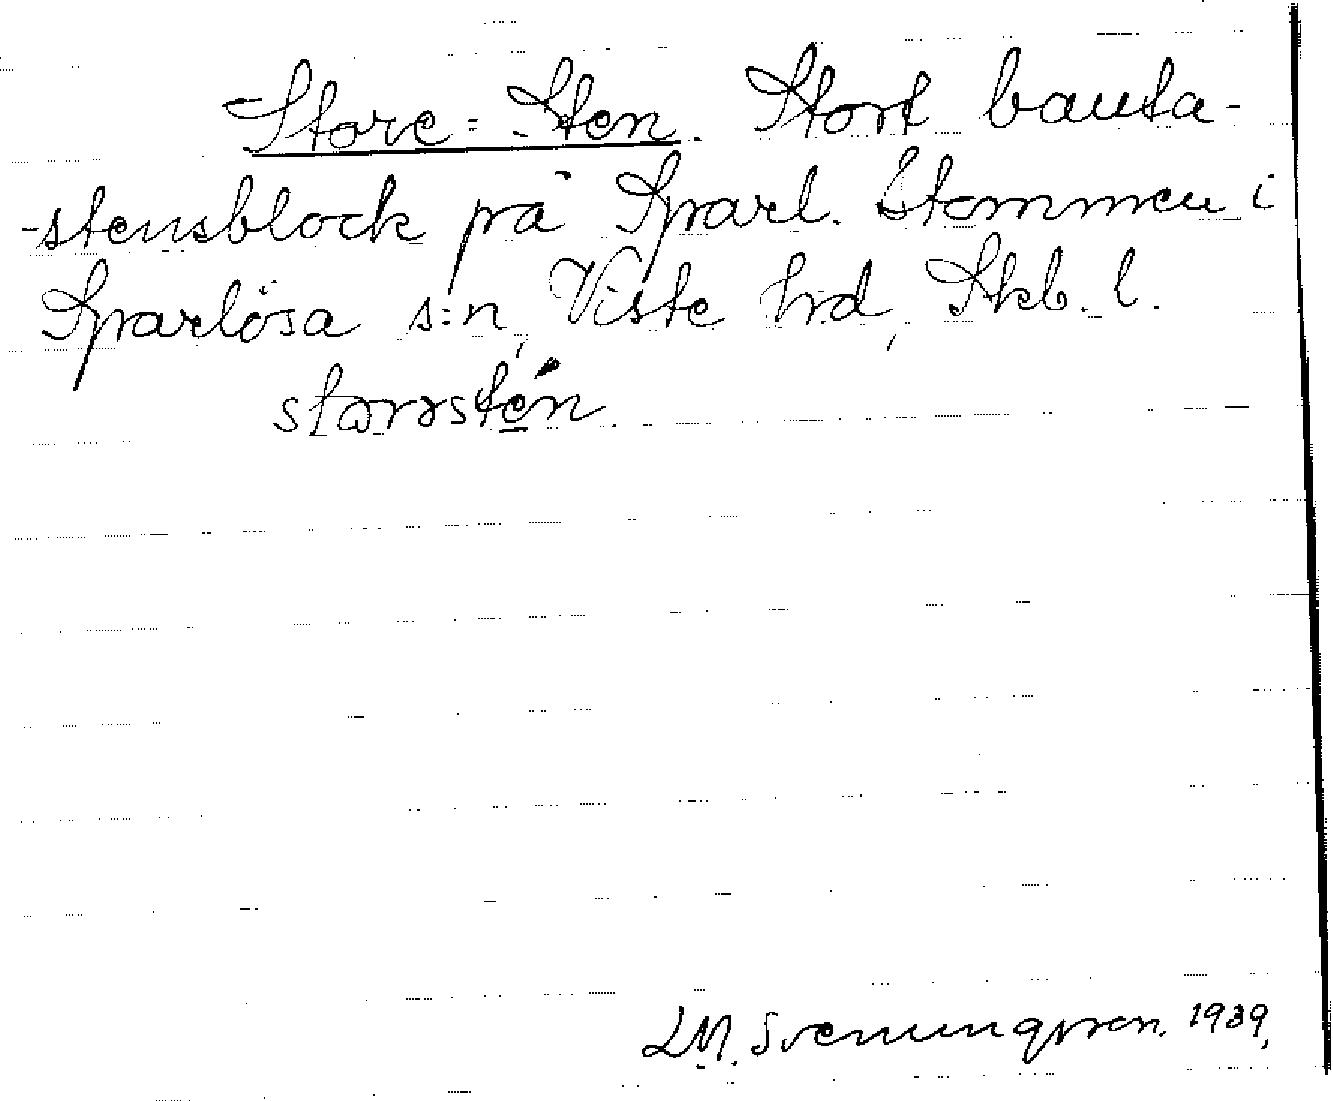 Store=Sten. Stort bauta-
-stensblock på Sparl. Stommen i
Sparlösa s:n, Viste hd, Skb. l.
storrsten.
L.M. Svenungsson. 1939,